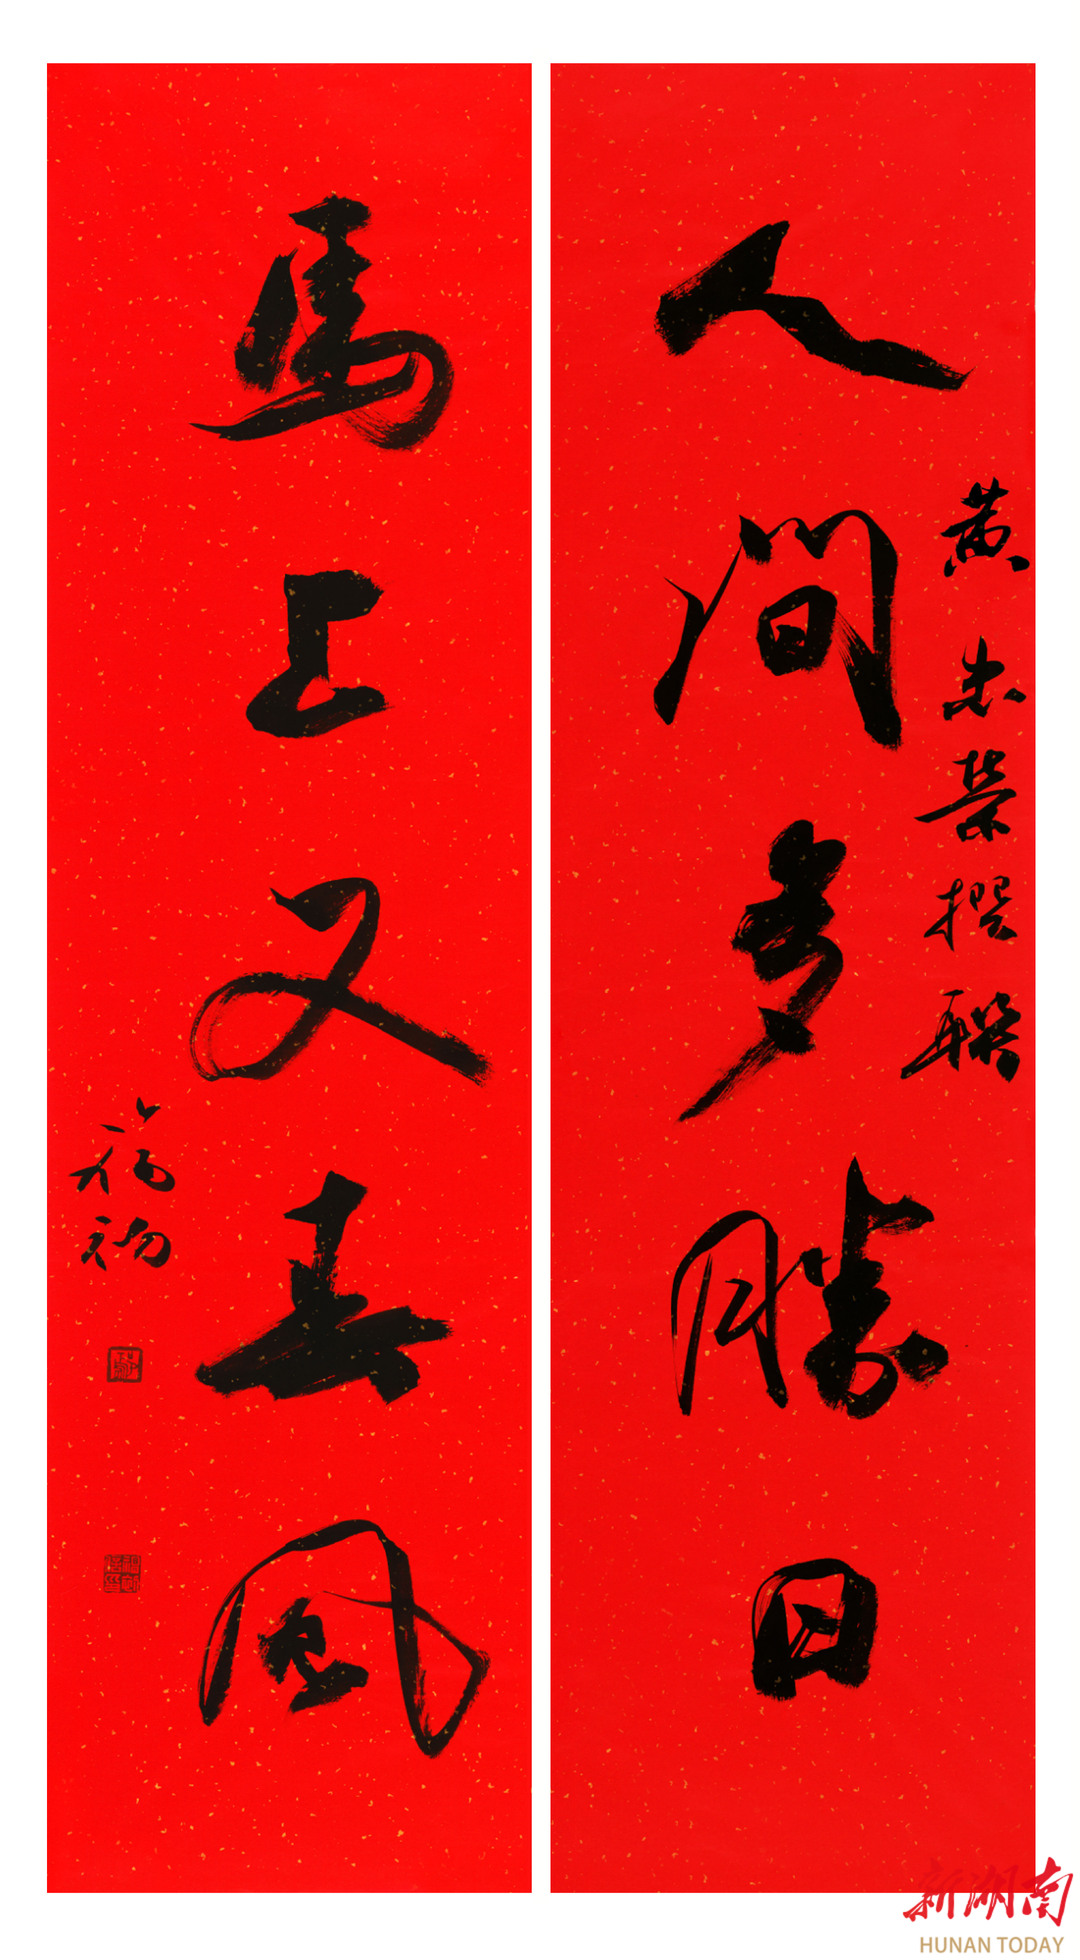 人間多勝日
黄榮撰聯
馬上又春風
福初
新湖南
HUNAN TODAY